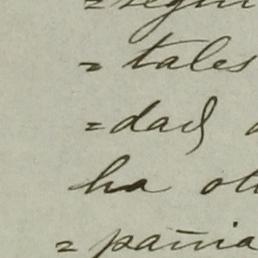 =segur
=tales
=dad
ha ot
=pañia